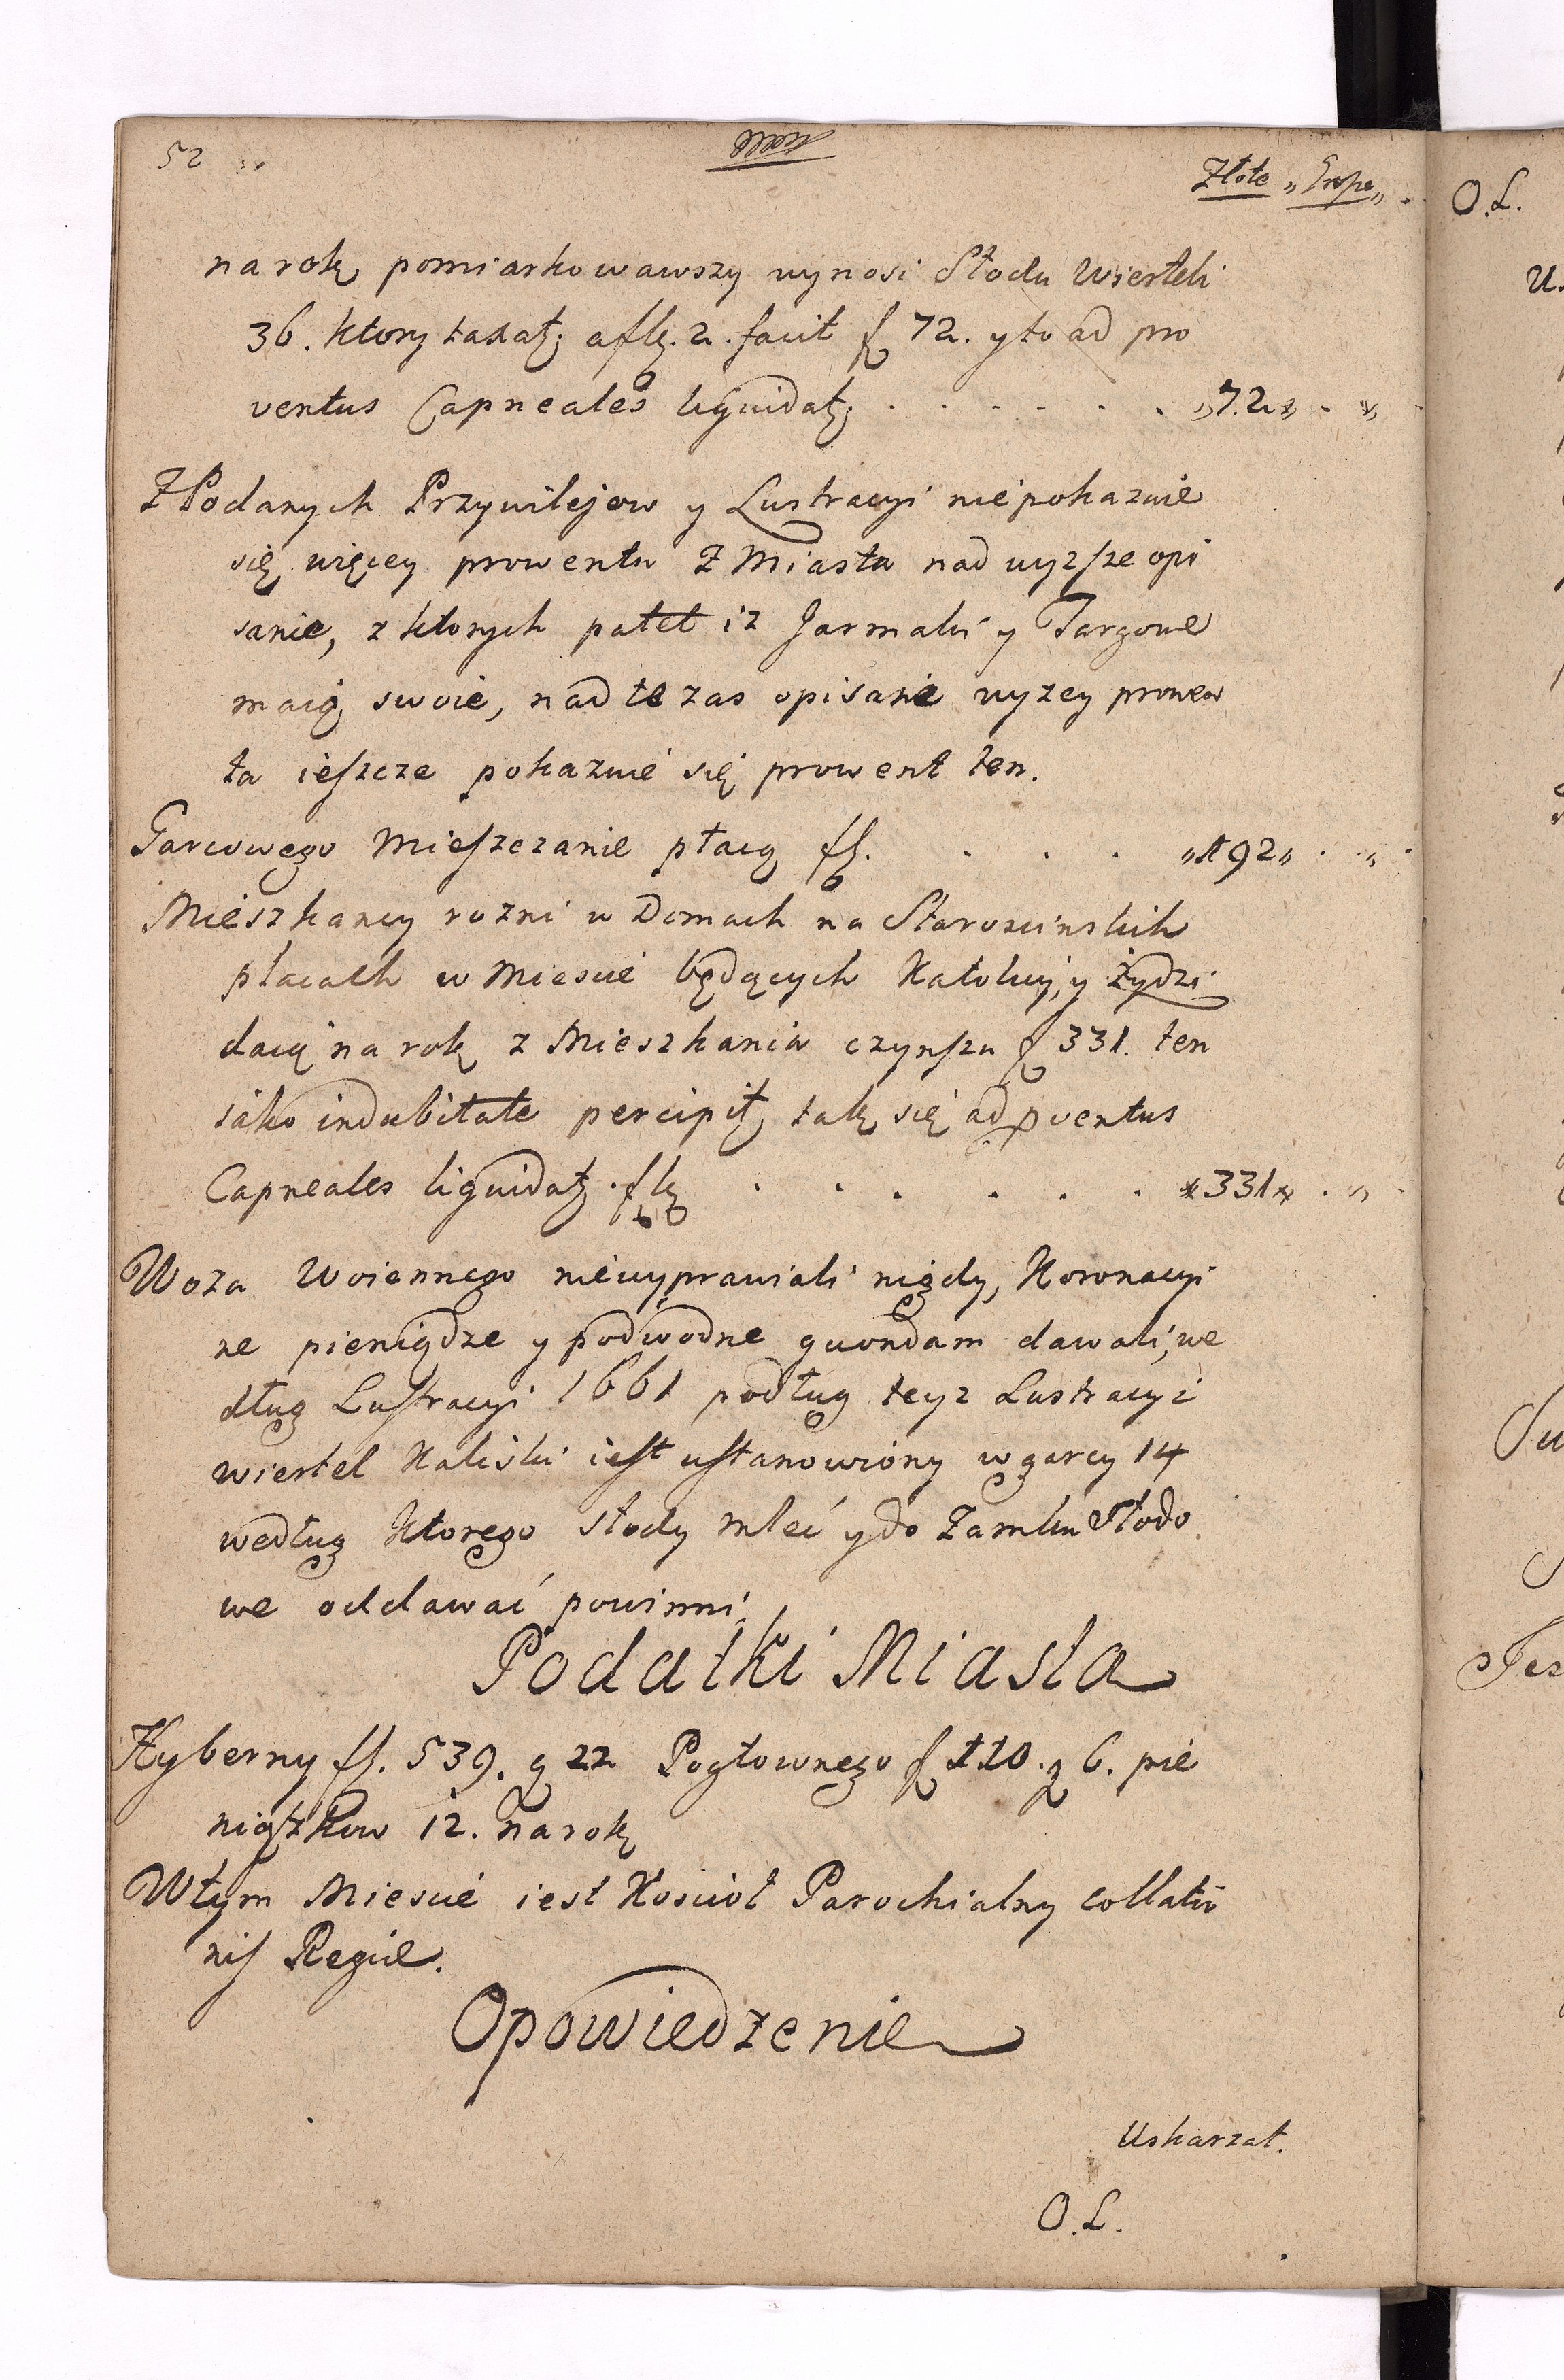 52
Złote „ Grosze „
na rok pomiarkowawszy wynosi Słodu Wierteli
36. ktory taxat; a flr. 2. facit f 72. y to ad pro
ventus Capneales liquidat; . . . . . . „ 72 „ . „
Z Podanych Przywilejow y Lustracyi nie pokazuie
się więcey prowentu Z Miasta nad wyższe opi
sanie, z ktorych patet iz Jarmaki y Targowe
maią swoie, nad te zas opisanie wyzey prowen
ta ieszcze pokazuie się prowent ten.
Garcowego Mieszczanie płacą fl. . . . „ 192 „ . „
Mieszkancy rozni w Domach na Staroscinskich
placach w Miescie będących Katolicy, y Żydzi
daią na rok z Mieszkania czynszu f 331. ten
iako indubitate percipit; tak się ad pventus
Capneales liquidat; fl . . . . . . „ 331 „ . „
Woza Woiennego niewyprawiali nigdy, Koronacyi
ne pieniądze y podwodne quondam dawali, we
dług Lustracyi 1661 podług teyz Lustracyi
wiertel Kaliski iest ustanowiony w garcy 14
według ktorego słody mleć y do Zamku Słodo
we oddawać powinni.
Podatki Miasta
Hyberny fl. 539. g 22 Pogłownego f 110. g 6. pie
niązkow 12. na rok
W tym Miescie iest Kosciol Parochialny collatio
nis Regiæ.
Opowiedzenie
Uskarzał.
O.L.
O.L.
U.
Su
Tes